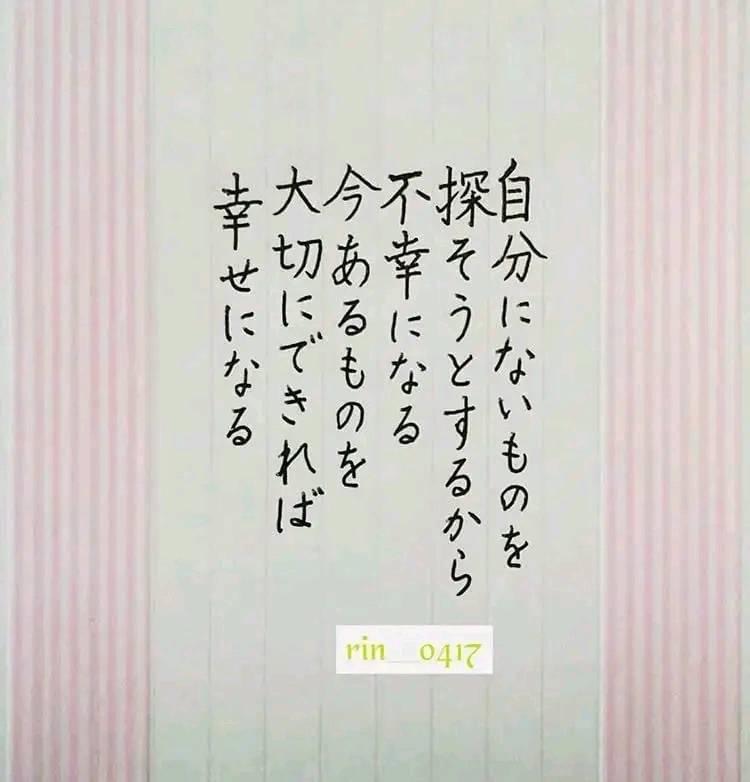 自分にないものを
探そうとするから
不幸になる
今あるものを
大切にできれば
幸せになる
rin__0417